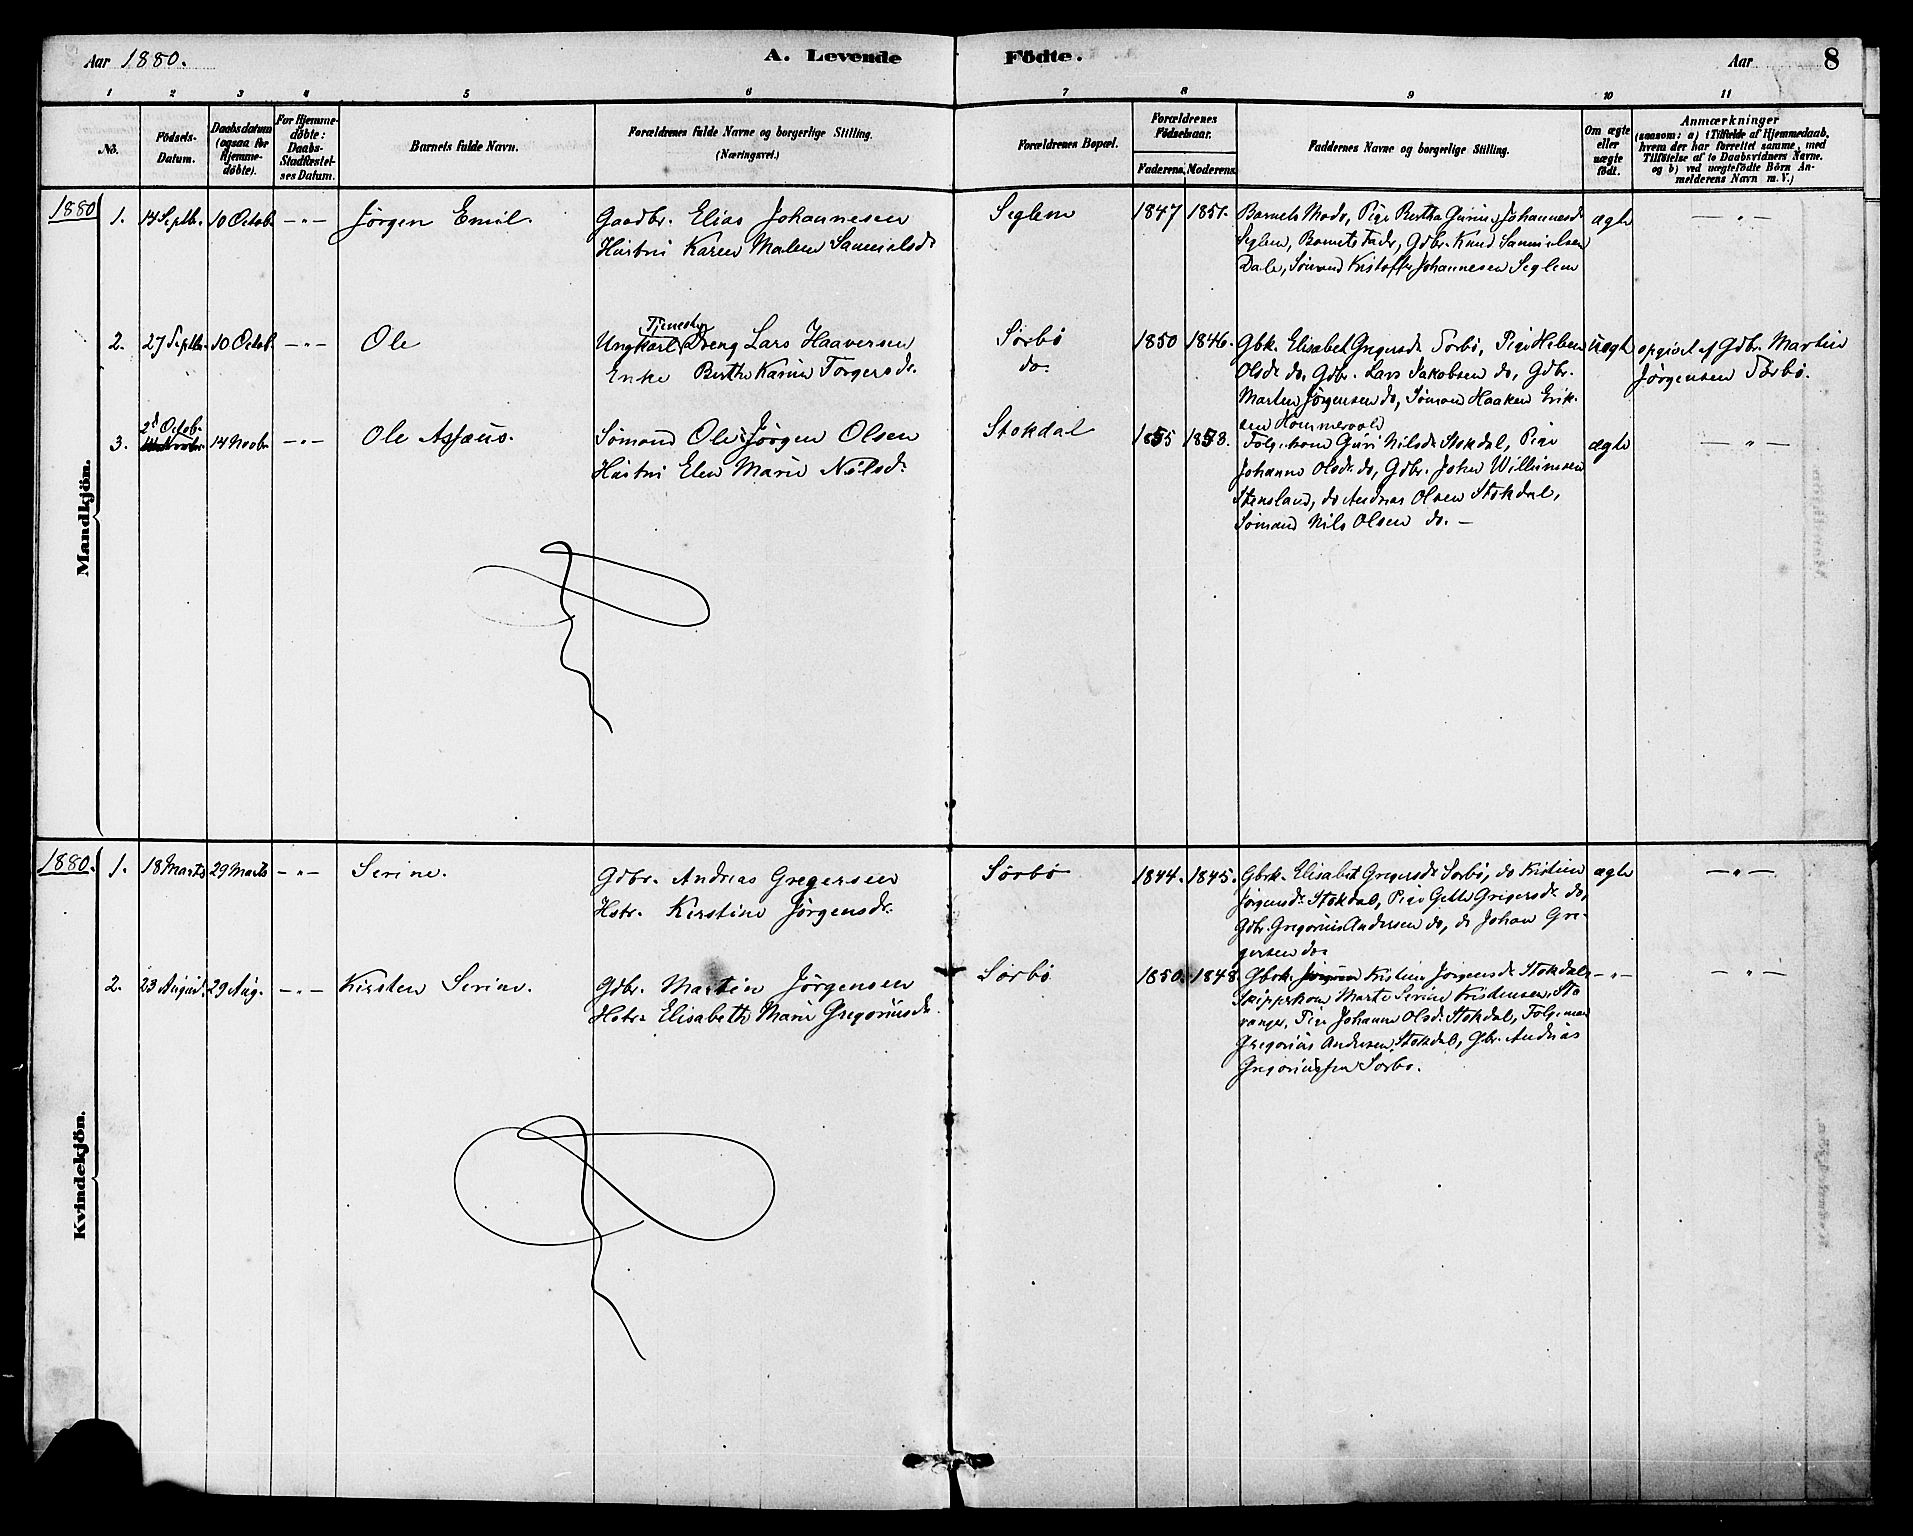 Aar 1880.
A. Levende Födte.
Aar
8
1 2 3 4 5 6 7 8 9 10 11
No.
Födsels-
Datum.
Daabsdatum
(ogsaa for
Hjemme-
döbte).
For Hjemme-
döbte:
Daabs-
Stadfæstel-
ses Datum.
Barnets fulde Navn.
Forældrenes fulde Navne og borgerlige Stilling.
(Næringsvei.)
Forældrenes Bopæl.
Forældrenes
Födselsaar.
Faderens. Moderens.
Faddernes Navne og borgerlige Stilling.
Om ægte
eller
uægte
födt.
Anmærkninger
(saasom: a) i Tilfælde af Hjemmedaab,
hvem der har forrettet samme, med
Tilföielse af to Daabsvidners Navne.
og b) ved uægtefödte Börn An-
melderens Navn m. V.)
Mandkjön.
1880
1. 14 Septb. 10 Octob. – " – Jørgen Emil.
Gaadbr. Elias Johannesen
Hustru Karen Malene Samuelsdr
Seglem
1847 1851.
Barnets Modr, Pige Bertha Gurine Johannesdr
Seglem, Barnets Fadr, Gdbr. Knud Samuelsen
Dale, Sømand Kristoffer Johannesen Seglem
ægte
– " –
2. 27 Septb. 10 Octob. – " – Ole
Tjeneste
Ungkarl Dreng Lars Haaversen
Enke Berthe Karine Torgersdr.
Sørbø
do.
1850 1846.
Gbk. Elisabet Gregersdr Sørbø, Pige Helene
Olsdr do, Gdbr. Lars Jakobsen do, Gdbr.
Martin Jørgensen do, Sømand Haaken Erik-
sen Hommervold
uægte
opgivet af Gdbr. Martin
Jørgensen Sørbø.
3. 2d Octob. 14 Novbr. – " – Ole Assæus.
Sømand Ole Jørgen Olsen
Hustru Elen Marie Nilsdr.
Stokdal
1855 1858.
Folgekone Guri Nilsdr Stokdal, Pige
Johanne Olsdr do, Gdbr. John Willumsen
Stensland, do Andreas Olsen Stokdal,
Sømand Nils Olsen do. –
ægte
– " –
Kvindekjön.
1880.
1. 18 Marts 29 Marts – " – Serine.
Gdbr. Andreas Gregersen
Hstr. Kerstine Jørgensdr.
Sørbø
1844. 1845.
Gbrk. Elisabet Gregersdr Sørbø, do Kristine
Jørgensdr Stokdal, Pige Gitte Gregersdr do,
Gdbr. Gregorius Andersen do, do Johan Gre-
gersen do.
ægte
– " –
2. 23 August. 29 Aug. – " – Kirsten Serine.
Gdbr. Martin Jørgensen
Hstr. Elisabeth Marie Gregoriusdr
Sørbø
1850. 1848
Gbrk. Kristine Jørgensdr Stokdal
Skipperkone Marte Serine Kristensen, Sta-
vanger, Pige Johanne Olsdr Stokdal, Folgemand
Gregorius Andersen Stokdal, Gbr. Andreas
Gregoriussen Sørbø.
– " –
– " –